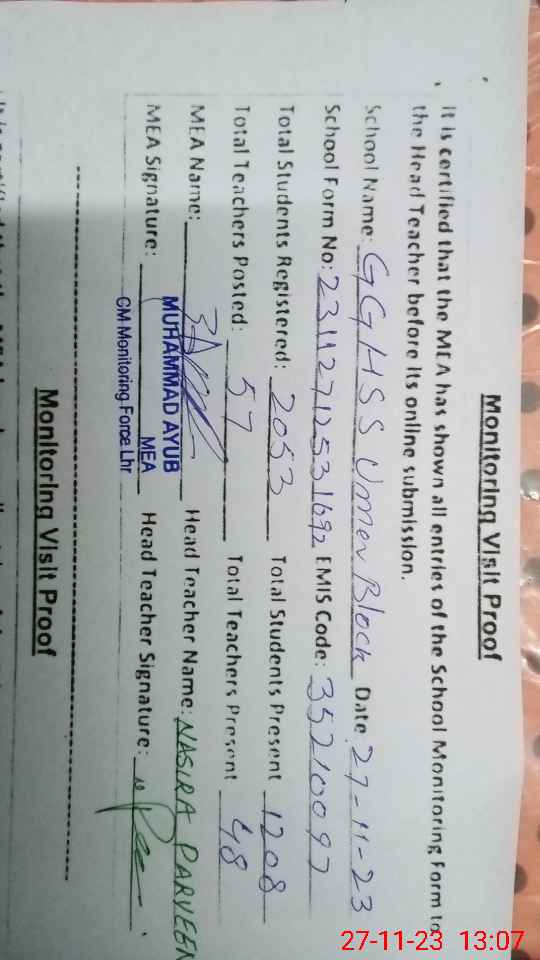 Monitoring Visit Proof
It is certified that the MEA has shown all entries of the School Monitoring Form to
the Head Teacher before its online submission.
School Name: GGHSS Umer Block Date 27-11-23
School Form No: 23112712531692 EMIS Code: 35210097
Total Students Registered: 2053 Total Students Present 1208
Total Teachers Posted: 57 Total Teachers Present 48
MEA Name: MUHAMMAD AYUB Head Teacher Name: NASIRA PARVEEN
MEA Signature: MEA Head Teacher Signature:
CM Monitoring Force Lhr
Monitoring Visit Proof
27-11-23 13:07